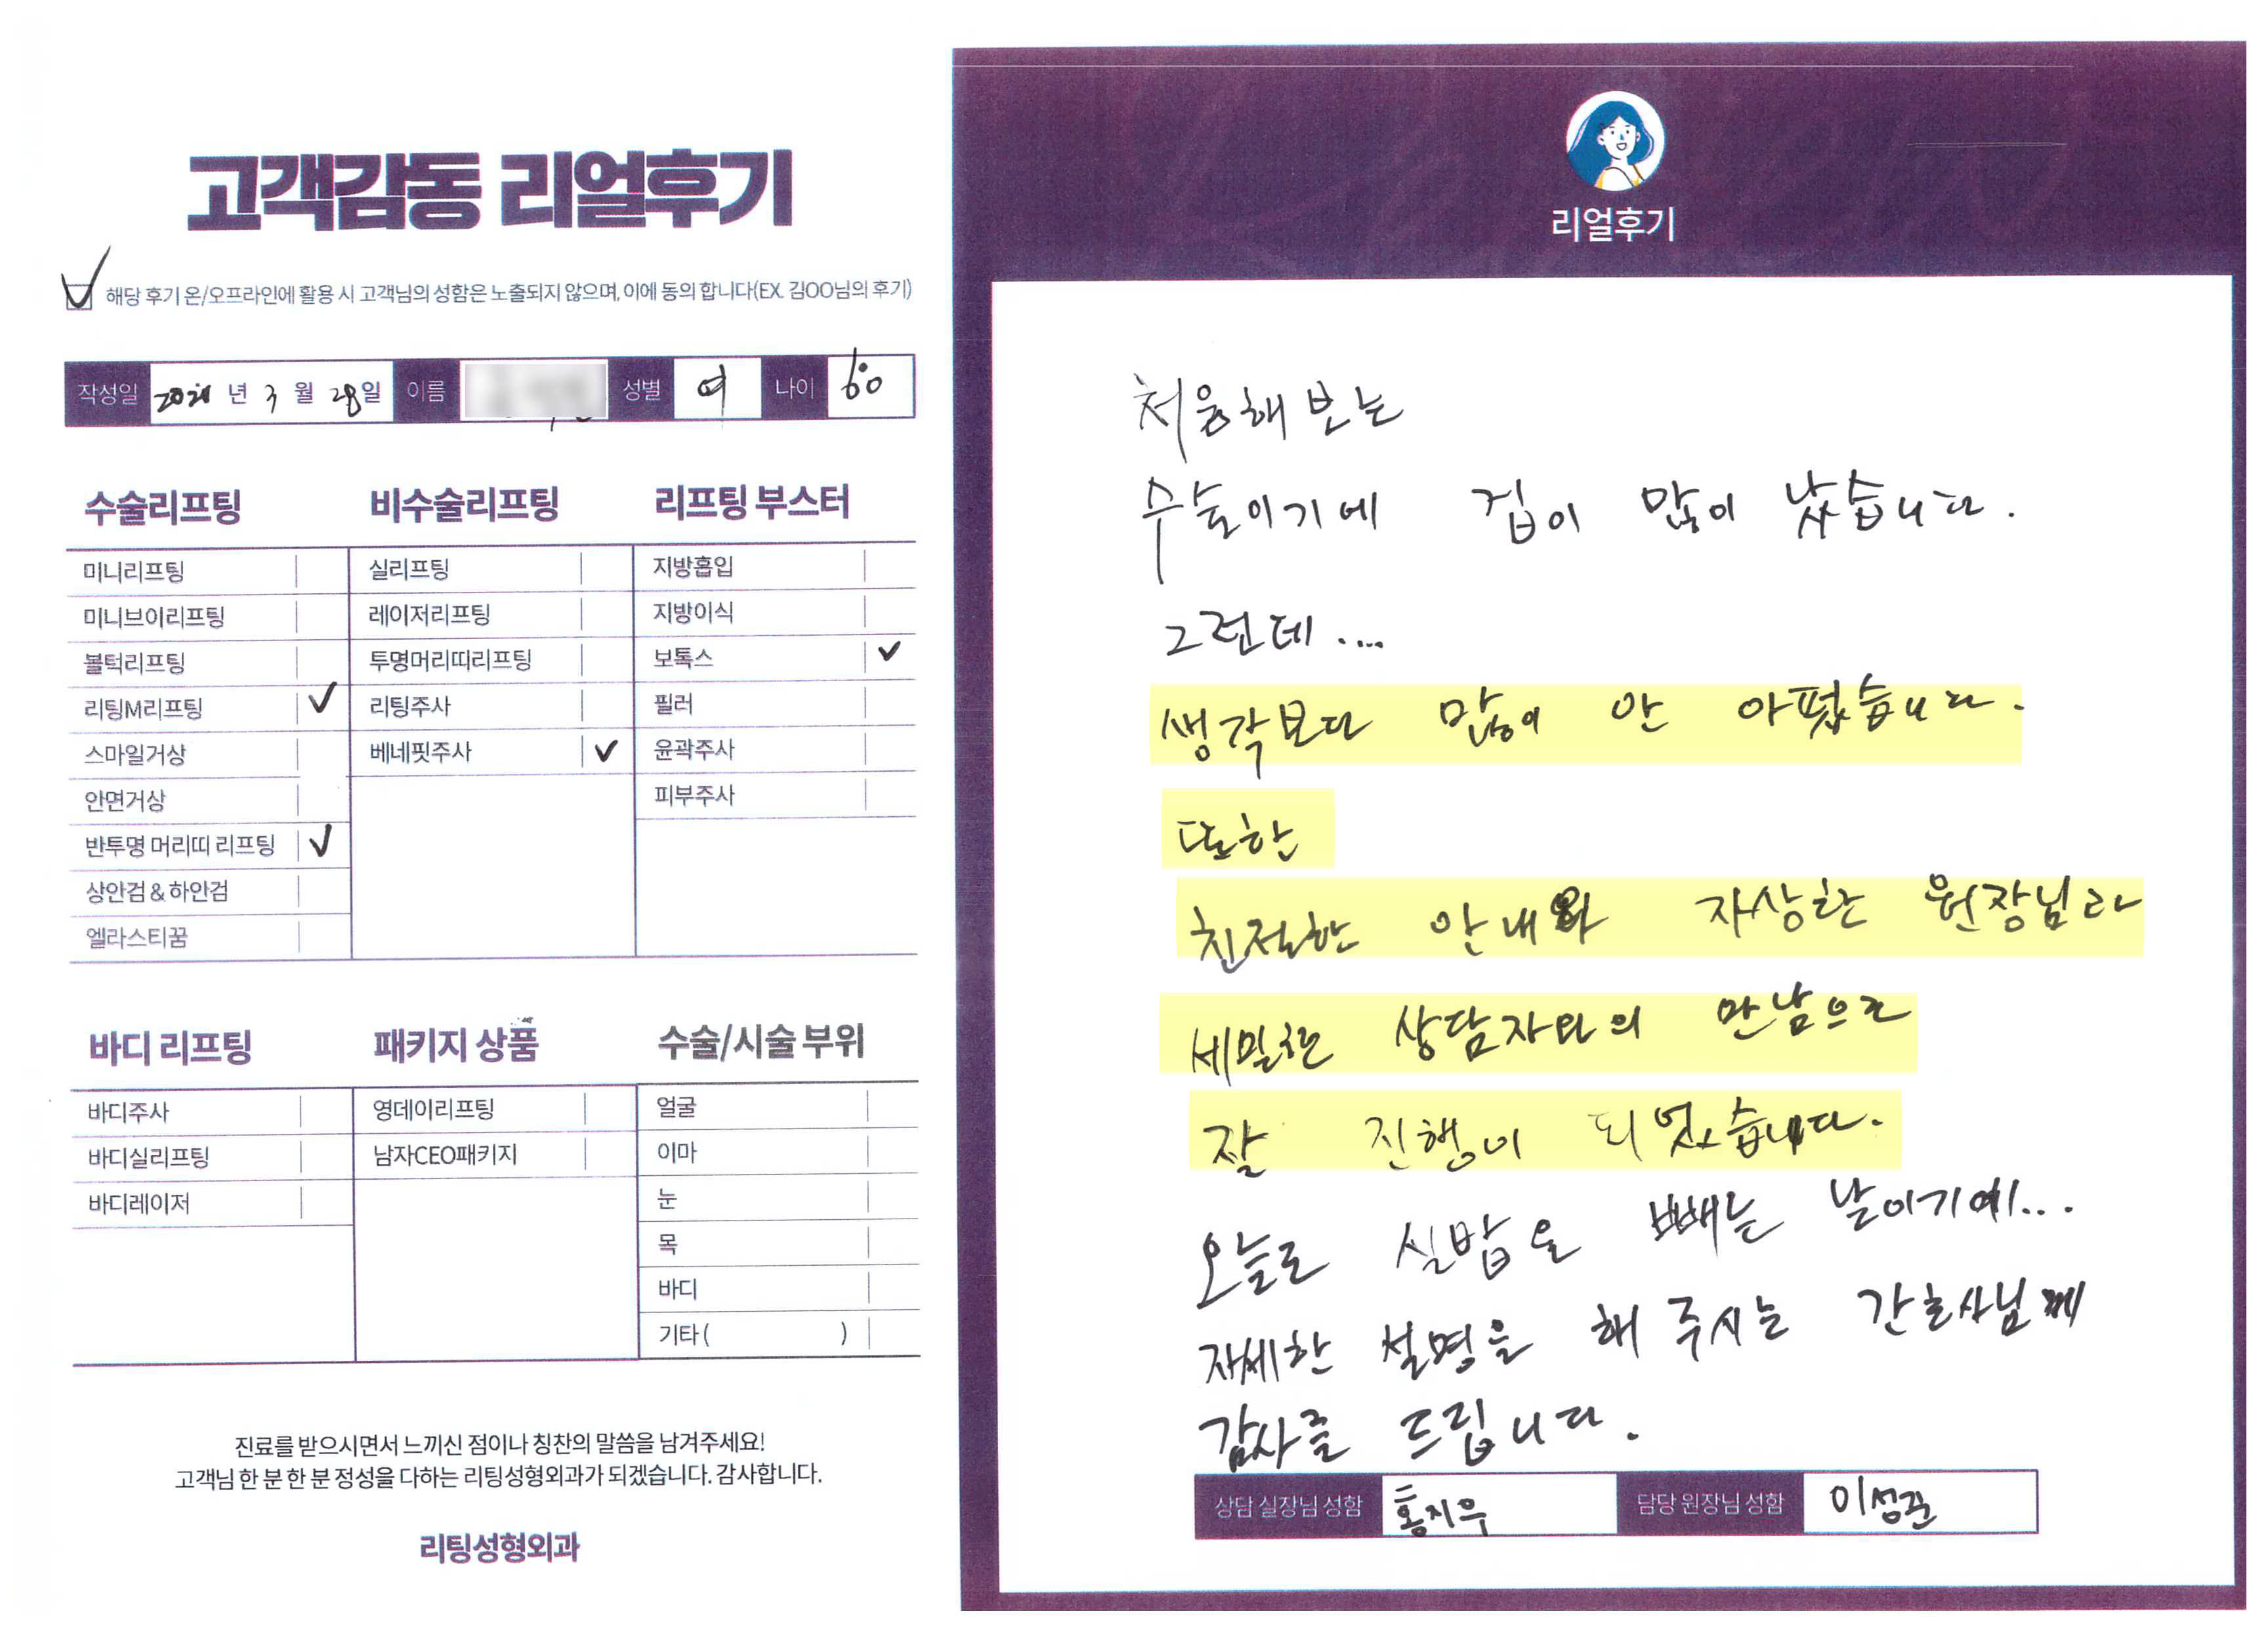 고객감동 리얼후기
해당 후기 온/오프라인에 활용 시 고객님의 성함은 노출되지 않으며, 이에 동의 합니다(EX. 김OO님의 후기)
작성일 년 3 월 28일 이름 성별 여 나이 60
수술리프팅
미니리프팅
미니브이리프팅
볼턱리프팅
리팅M리프팅
스마일거상
안면거상
반투명 머리띠 리프팅
상안검 & 하안검
엘라스티꿈
비수술리프팅
실리프팅
레이저리프팅
투명머리띠리프팅
리팅주사
베네핏주사
리프팅 부스터
지방흡입
지방이식
보톡스
필러
윤곽주사
피부주사
바디 리프팅
바디주사
바디실리프팅
바디레이저
패키지 상품
영데이리프팅
남자CEO패키지
수술/시술 부위
얼굴
이마
눈
목
바디
기타 ( )
진료를 받으시면서 느끼신 점이나 칭찬의 말씀을 남겨주세요!
고객님 한 분 한 분 정성을 다하는 리팅성형외과가 되겠습니다. 감사합니다.
리팅성형외과
리얼후기
처음해 보는
수술이기에 겁이 많이 났습니다.
그런데 ....
생각보다 많이 안 아펐습니다.
또한
친절한 안내와 자상한 원장님과
세밀한 상담자와의 만남으로
잘 진행이 되었습니다.
오늘로 실밥을 빼는 날이기에...
자세한 설명을 해 주시는 간호사님께
감사를 드립니다.
상담 실장님 성함 홍지우 담당 원장님 성함